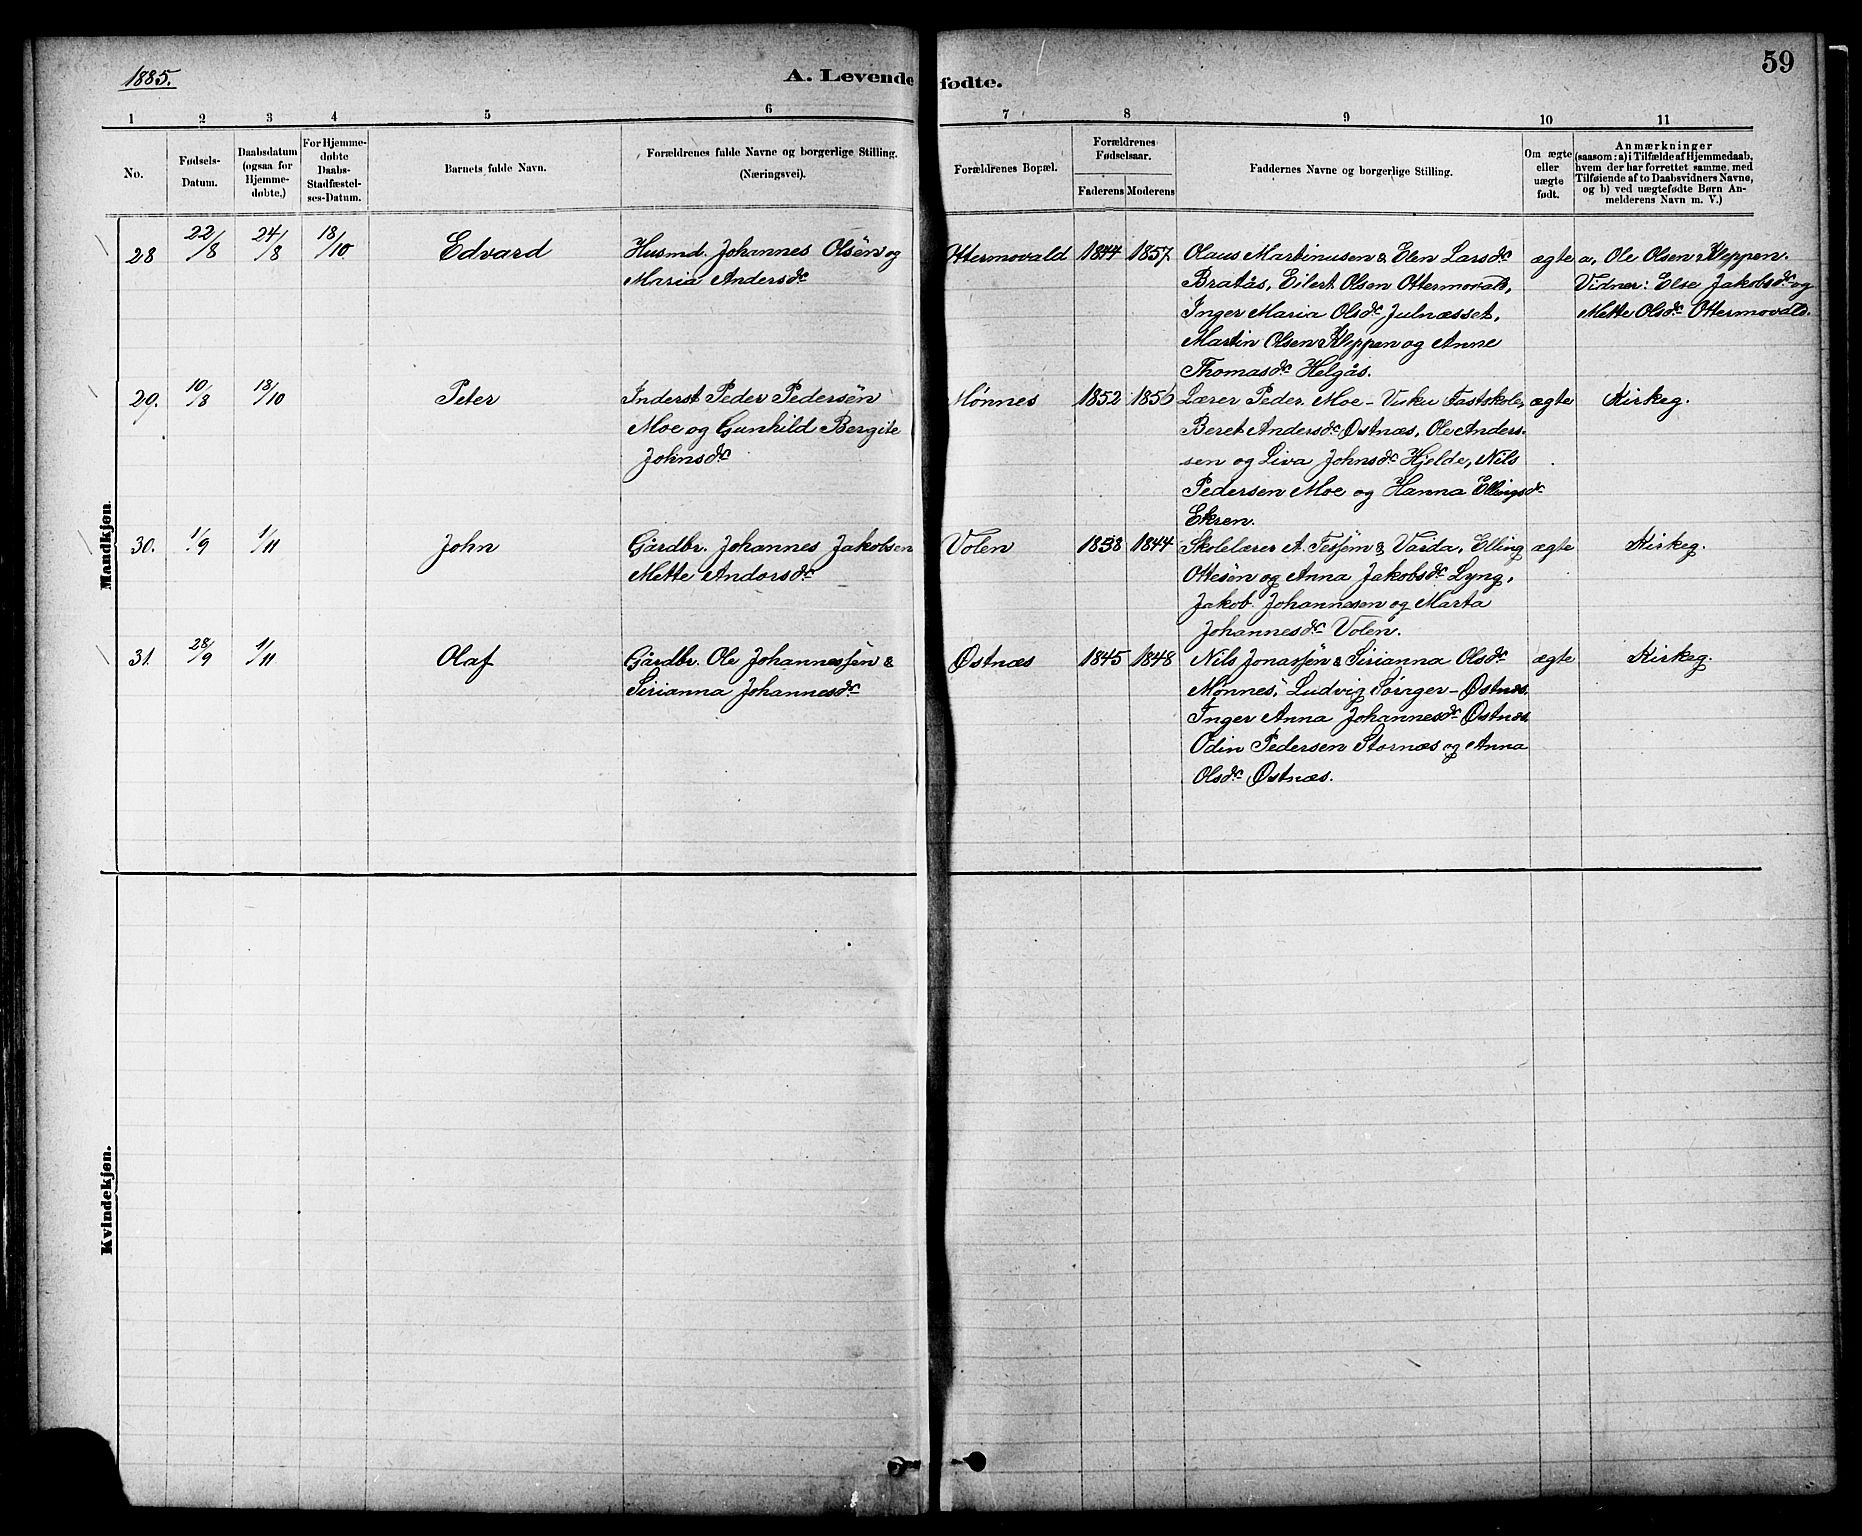 1885.
A. Levende fødte.
59
1 2 3 4 5 6 7 8 9 10 11
No.
Fødsels-
Datum.
Daabsdatum
(ogsaa for
Hjemme-
døbte.)
For Hjemme-
døbte
Daabs-
Stadfæstel-
ses-Datum.
Barnets fulde Navn.
Forældrenes fulde Navne og borgerlige Stilling.
(Næringsvei).
Forældrenes Bopæl.
Forældrenes
Fødselsaar.
Faderens Moderens
Faddernes Navne og borgerlige Stilling.
Om ægte
eller
uægte
født.
Anmærkninger
(saasom: a) i Tilfælde af Hjemmedaab,
hvem der har forrettet samme, med
Tilføiende af to Daabsvidners Navne,
og b) ved uægtefødte Børn An-
melderens Navn m. V.)
Mandkjøn.
28 22/8 24/8 18/10 Edvard
Husmd. Johannes Olsen og
Maria Andersdr
Ottermovald 1844 1857
Olaus Martinusen & Elen Larsdr
Bratås, Eilert Olsen Ottermovald,
Inger Maria Olsdr Julnæsset,
Martin Olsen Kleppen og Anne
Thomasdr Helgås.
ægte
a, Ole Olsen Kleppen.
Vidner: Else Jakobsdr og
Mette Olsdr Ottermovald.
29. 10/8 18/10 Peter
Inderst Peder Pedersen
Moe og Gunhild Bergite
Johnsdr
Mønnes 1852 1856
Lærer Peder Moe - Vuku Fastskole,
Beret Andersdr Østnæs, Ole Anders-
sen og Liva Johnsdr Hjelde, Nils
Pedersen Moe og Hanna Ellingsdr
Ekren.
ægte
Kirkeg.
30. 1/9 1/11 John
Gårdbr. Johannes Jakobsen
Mette Andersdr
Volen 1858 1844
Skolelærer A. Tessem & Varda, Elling
Ottesen og Anna Jakobsdr Lyng,
Jakob Johannesen og Marta
Johannesdr Volen.
ægte
Kirkeg.
31. 28/9 1/11 Olaf
Gårdbr. Ole Johannessen &
Sirianna Johannesdr
Østnæs 1845 1848
Nils Jonassen & Sirianna Olsdr
Mønnes, Ludvig Sørnger - Østnæs.
Inger Anna Johannesdr Østnæs
Odin Pedersen Stornæs og Anna
Olsdr Østnæs.
ægte
Kirkeg.
Kvindekjøn.